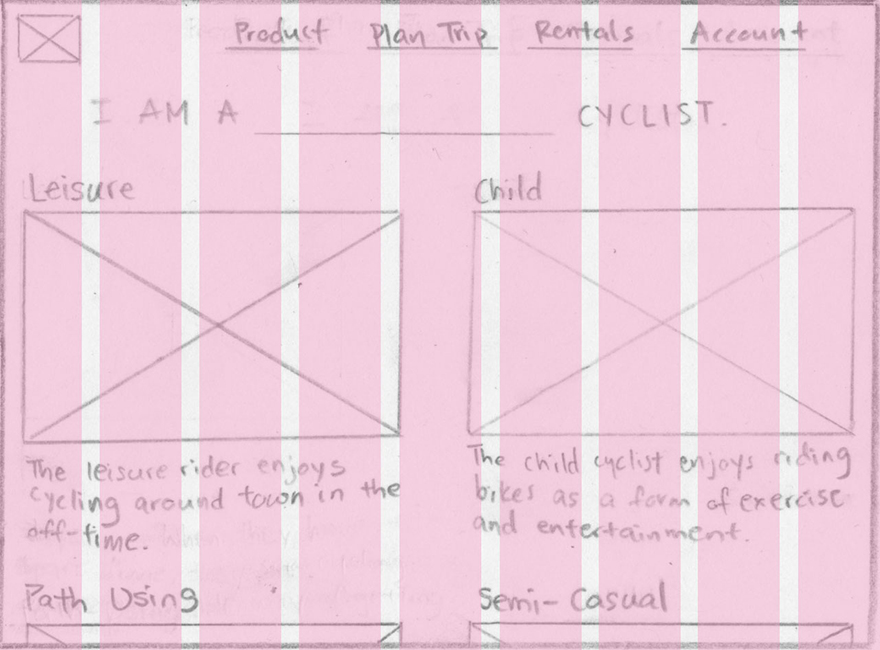 Product Plan Trip Rentals Account
I AM A ____________ CYCLIST.
Leisure
The leisure rider enjoys
cycling around town in the
off-time.
Child
The child cyclist enjoys riding
bikes as a form of exercise
and entertainment.
Path Using
Semi-Casual